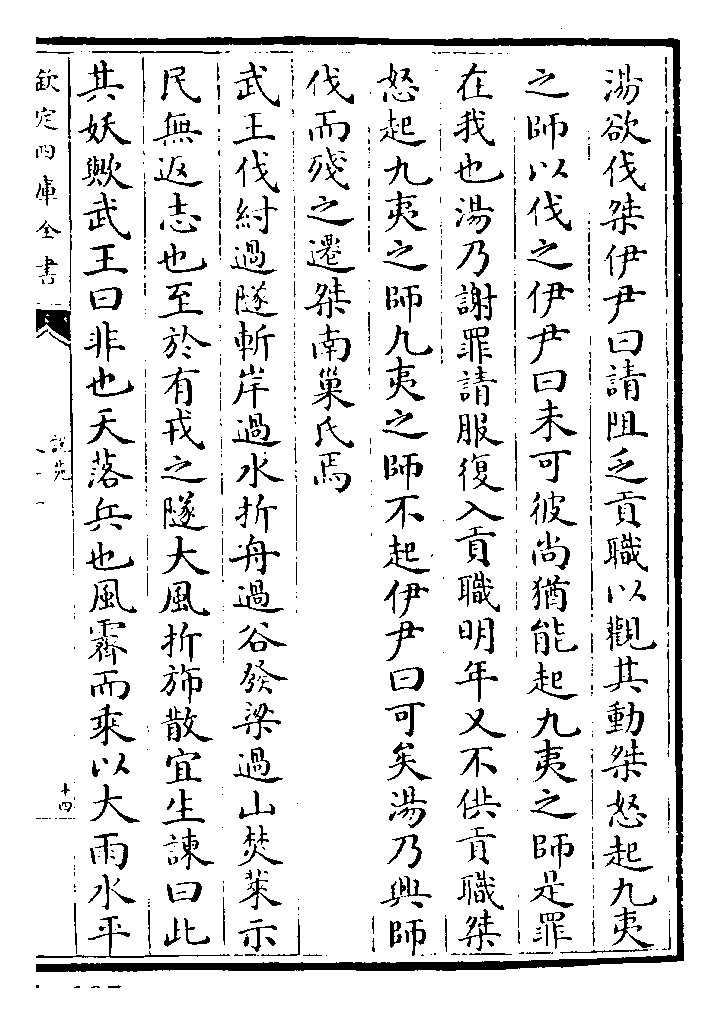 湯欲伐桀伊尹曰請阻乏貢職以觀其動桀怒起九夷
之師以伐之伊尹曰未可彼尚猶能起九夷之師是罪
在我也湯乃謝罪請服復入貢職明年又不供貢職桀
怒起九夷之師九夷之師不起伊尹曰可矣湯乃興師
伐而殘之遷桀南巢氏焉
武王伐紂過隧斬岸過水折舟過谷發梁過山焚萊示
民無返志也至於有戎之隧大風折旆散宜生諫曰此
其妖歟武王曰非也天落兵也風霽而乘以大雨水平
欽定四庫全書
說
十四